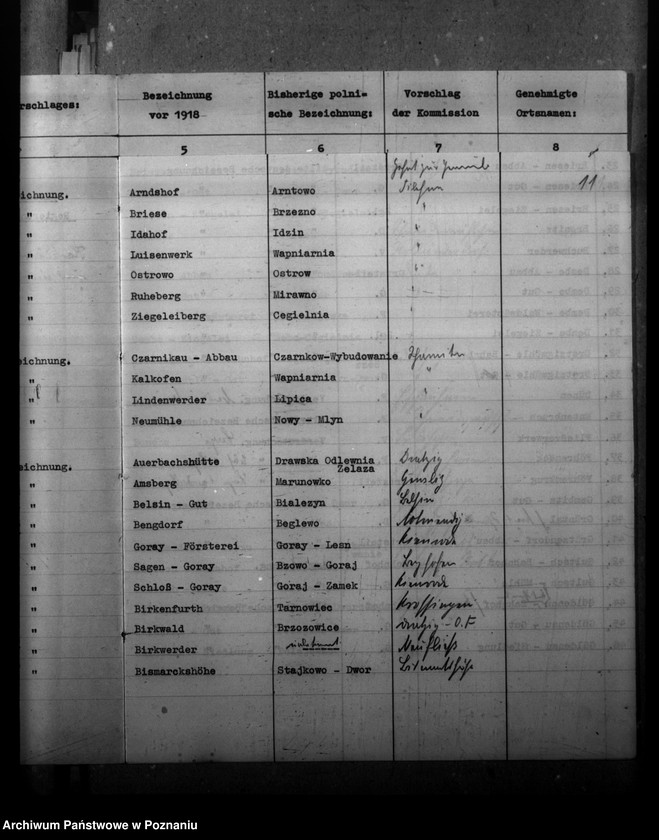 rschlages:
Bezeichnung vor 1918
Bisherige polni= sche Bezeichnung:
Vorschlag der Kommission
Genehmigte Ortsnamen:
5 6 7 8
11
ichnung. Arndshof Arntowo
" Briese Brzezno "
" Idahof Idzin "
" Luisenwerk Wapniarnia "
" Ostrowo Ostrow "
" Ruheberg Mirawno
" Ziegeleiberg Cegielnia
ichnung. Czarnikau - Abbau Czarnków-Wybudowanie
" Kalkofen Wapniarnia "
" Lindenwerder Lipica "
" Neumühle Nowy - Mlyn "
eichnung. Auerbachshütte Drawska Odlewnia Zelaza Dratzig
" Amsberg Marunowko
" Belsin - Gut Bialezyn Belsin
" Bengdorf Beglewo
" Goray - Försterei Goray - Lesn
" Sagen - Goray Bzowo - Goraj
" Schloß - Goray Goraj - Zamek
" Birkenfurth Tarnowiec
" Birkwald Brzozowice Dratzig - O.F.
" Birkwerder unbekannt Neufließ
" Bismarckshöhe Stajkowo - Dwor Bismarckshöhe
Archiwum Państwowe w Poznaniu